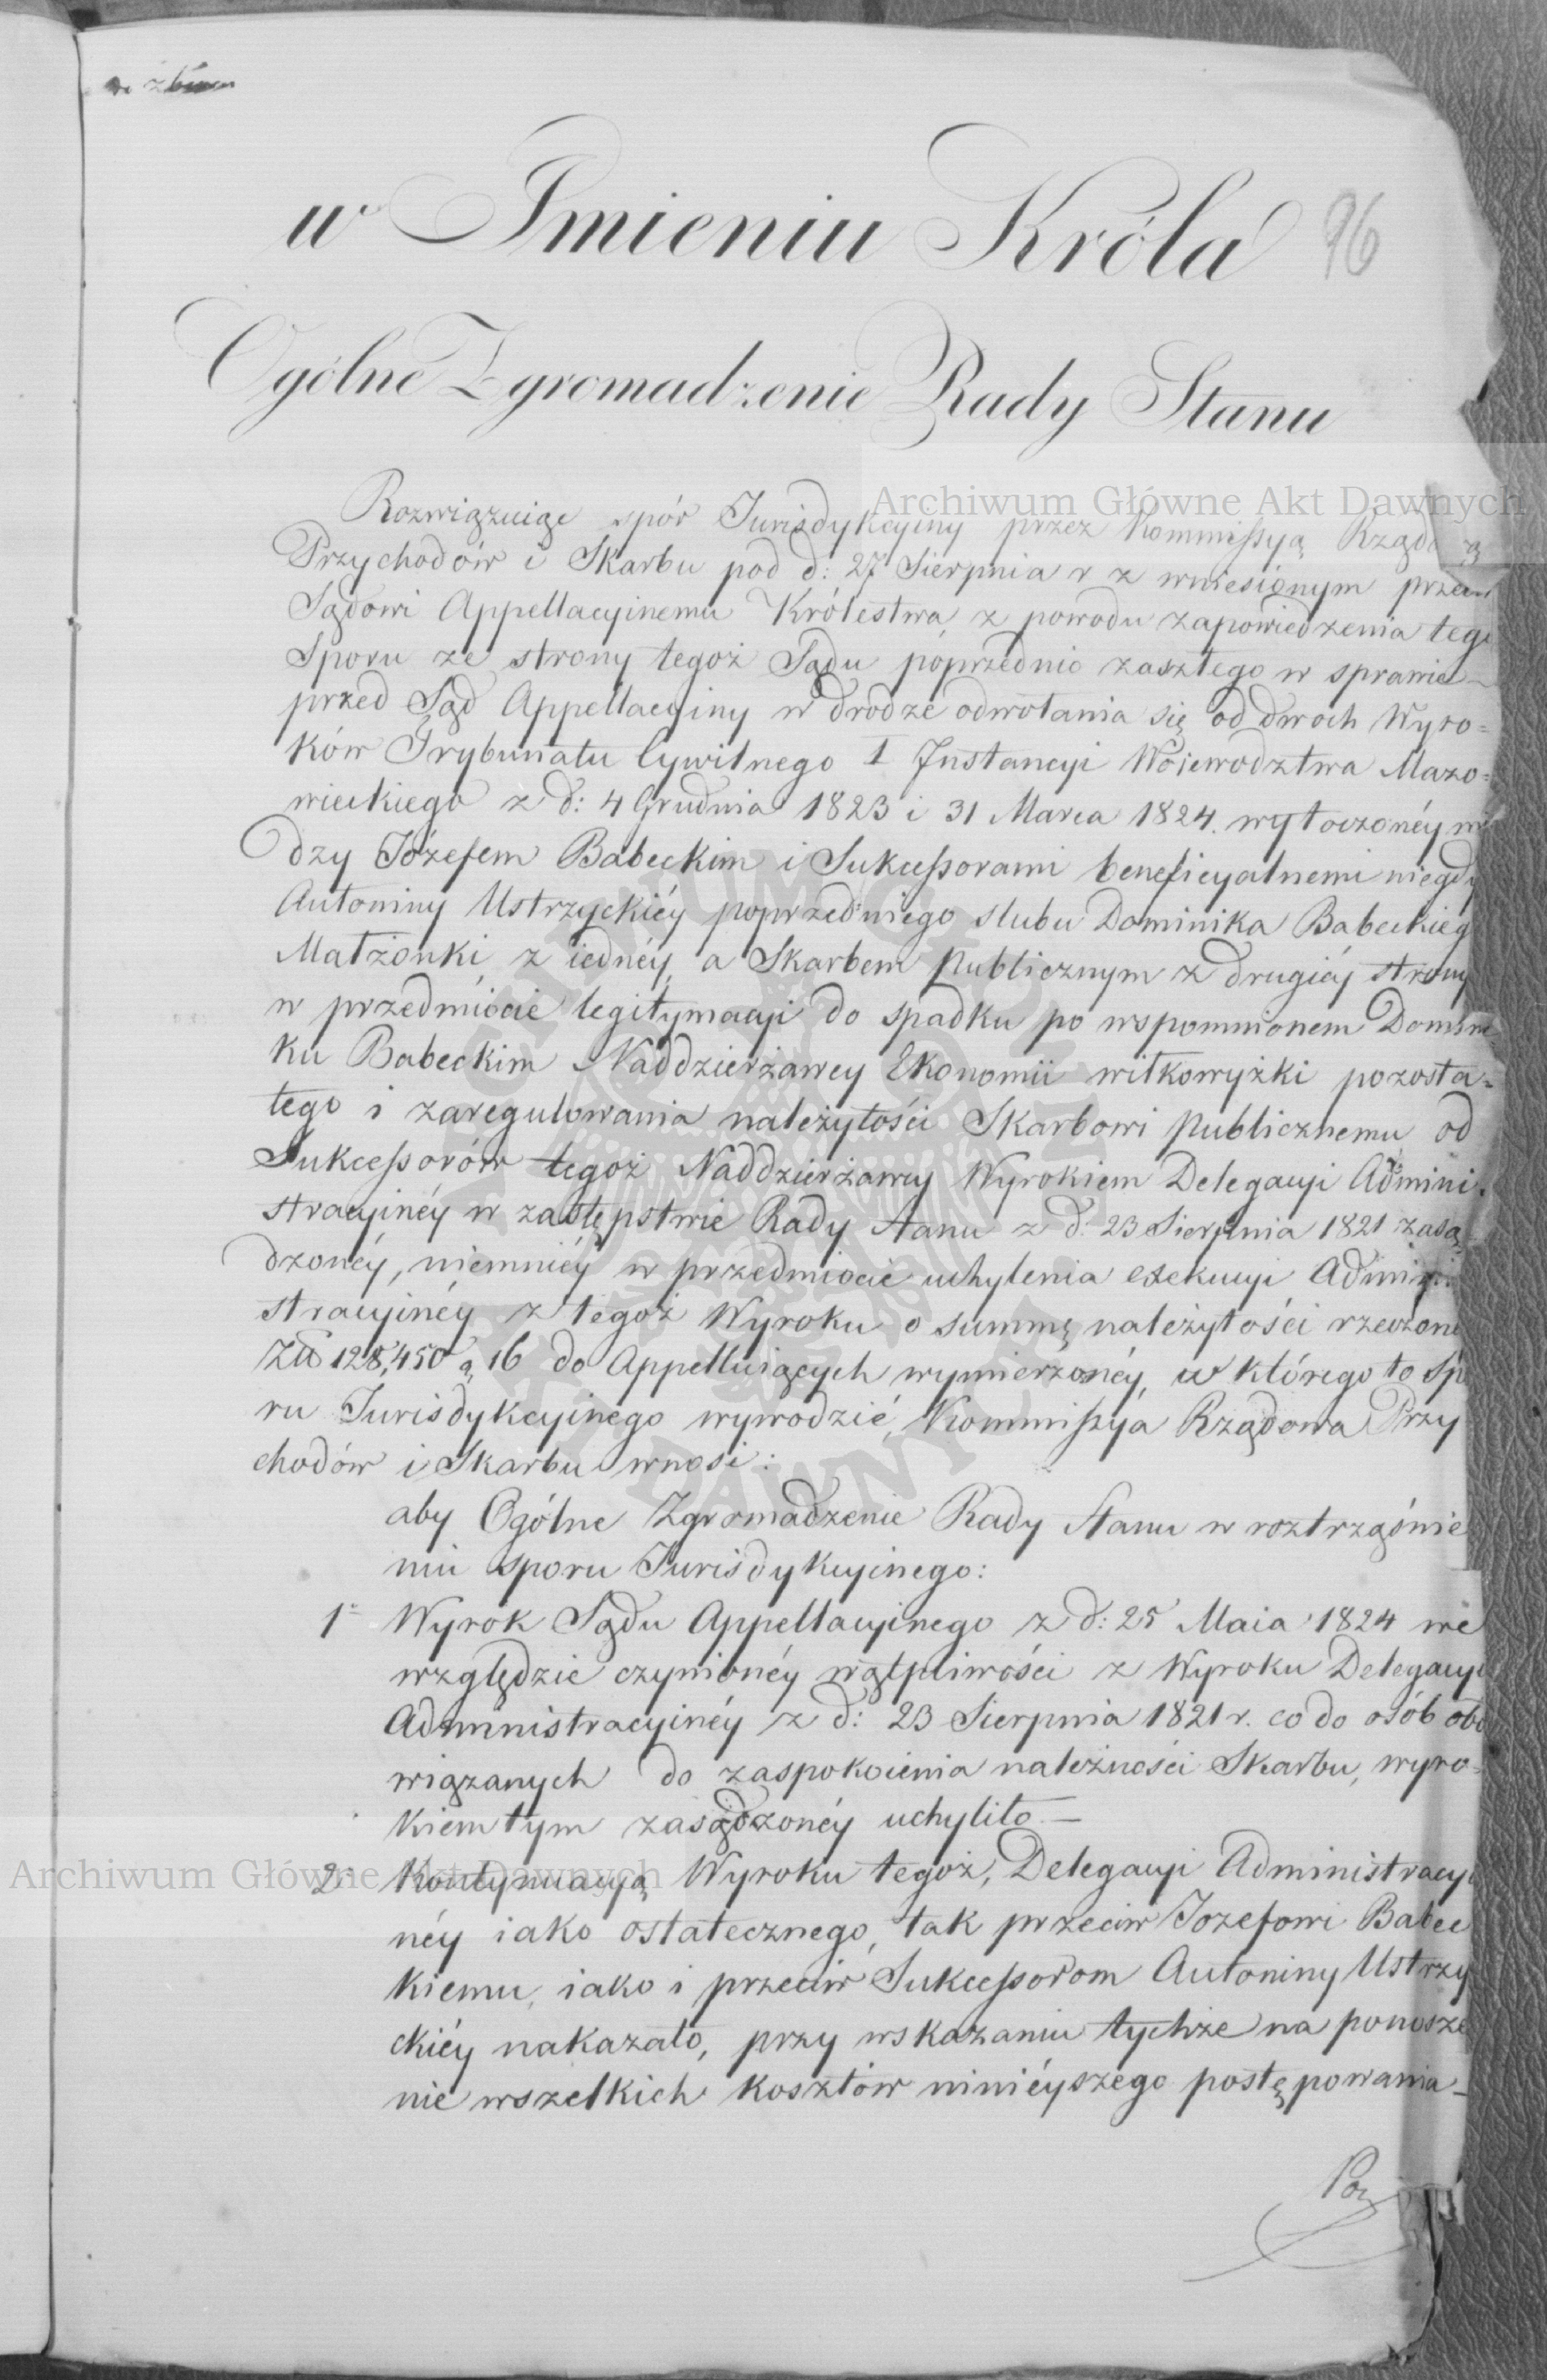 w Imieniu Króla
96
Ogólne Zgromadzenie Rady Stanu
Rozwiązuiąc spór Jurisdykcyiny przez Kommissyą Rządową
Archiwum Główne Akt Dawnych
Przychodów i Skarbu pod d: 27 Sierpnia r z wniesionym przeciw
Sądowi Appellacyinemu Królestwa, z powodu zapowiedzenia tego
Sporu ze strony tegoż Sądu poprzednio zaszłego w sprawie
przed Sąd Appellacyiny w drodze odwołania się od dwoch Wyro=
ków Trybunału Cywilnego I Instancyi Woiewodztwa Mazo=
wieckiego z d: 4 Grudnia 1823 i 31 Marca 1824. wytoczonéy mię
dzy Józefem Babeckim i Sukcessorami beneficyalnemi niegdy
Antoniny Ustrzyckiéy poprzedniego slubu Dominika Babeckieg
Małżonki, z iednéy, a Skarbem Publicznym z drugiéy strony
w przedmiocie legitymacyi do spadku po wspomnionem Domini
ku Babeckim Naddzierżawcy Ekonomii wiłkowyżki pozosta=
łego i zaregulowania należytości Skarbowi Publicznemu od
Sukcessorów tegoż Naddzierżawcy Wyrokiem Delegacyi Admini=
stracyinéy w zastępstwie Rady Stanu z d: 23 Sierpnia 1821 zasą=
dzonéy, niemniéy w przedmiocie uchylenia exekucyi Admini
stracyinéy z tegoż Wyroku o summę należytości rzeczoné
Złt 128,450 g 16 do Appelluiących wymierzonéy, w którego to Spo
ru Jurisdykcyinego wywodzić, Kommissya Rządowa Przy
chodów i Skarbu wnosi:
aby Ogólne Zgromadzenie Rady Stanu w roztrząśnie
niu sporu Jurisdykcyinego:
1° Wyrok Sądu Appellacyinego z d: 25 Maia 1824 we
względzie czynionéy wątpliwości z Wyroku Delegacyi
Administracyinéy z d: 23 Sierpnia 1821 r. co do osób obo
wiązanych do zaspokoienia należności Skarbu, wyro=
kiem tym zasądzonéy uchyliło —
Archiwum Główne Akt Dawnych
2° Kontynuacyą Wyroku tegoż, Delegacyi Administracyi
néy iako ostatecznego, tak przeciw Jozefowi Babec
kiemu, iako i przeciw Sukcessorom Antoniny Ustrzy
ckiéy nakazało, przy wskazaniu tychże na ponosze
nie wszelkich kosztów ninieyszego postępowania —